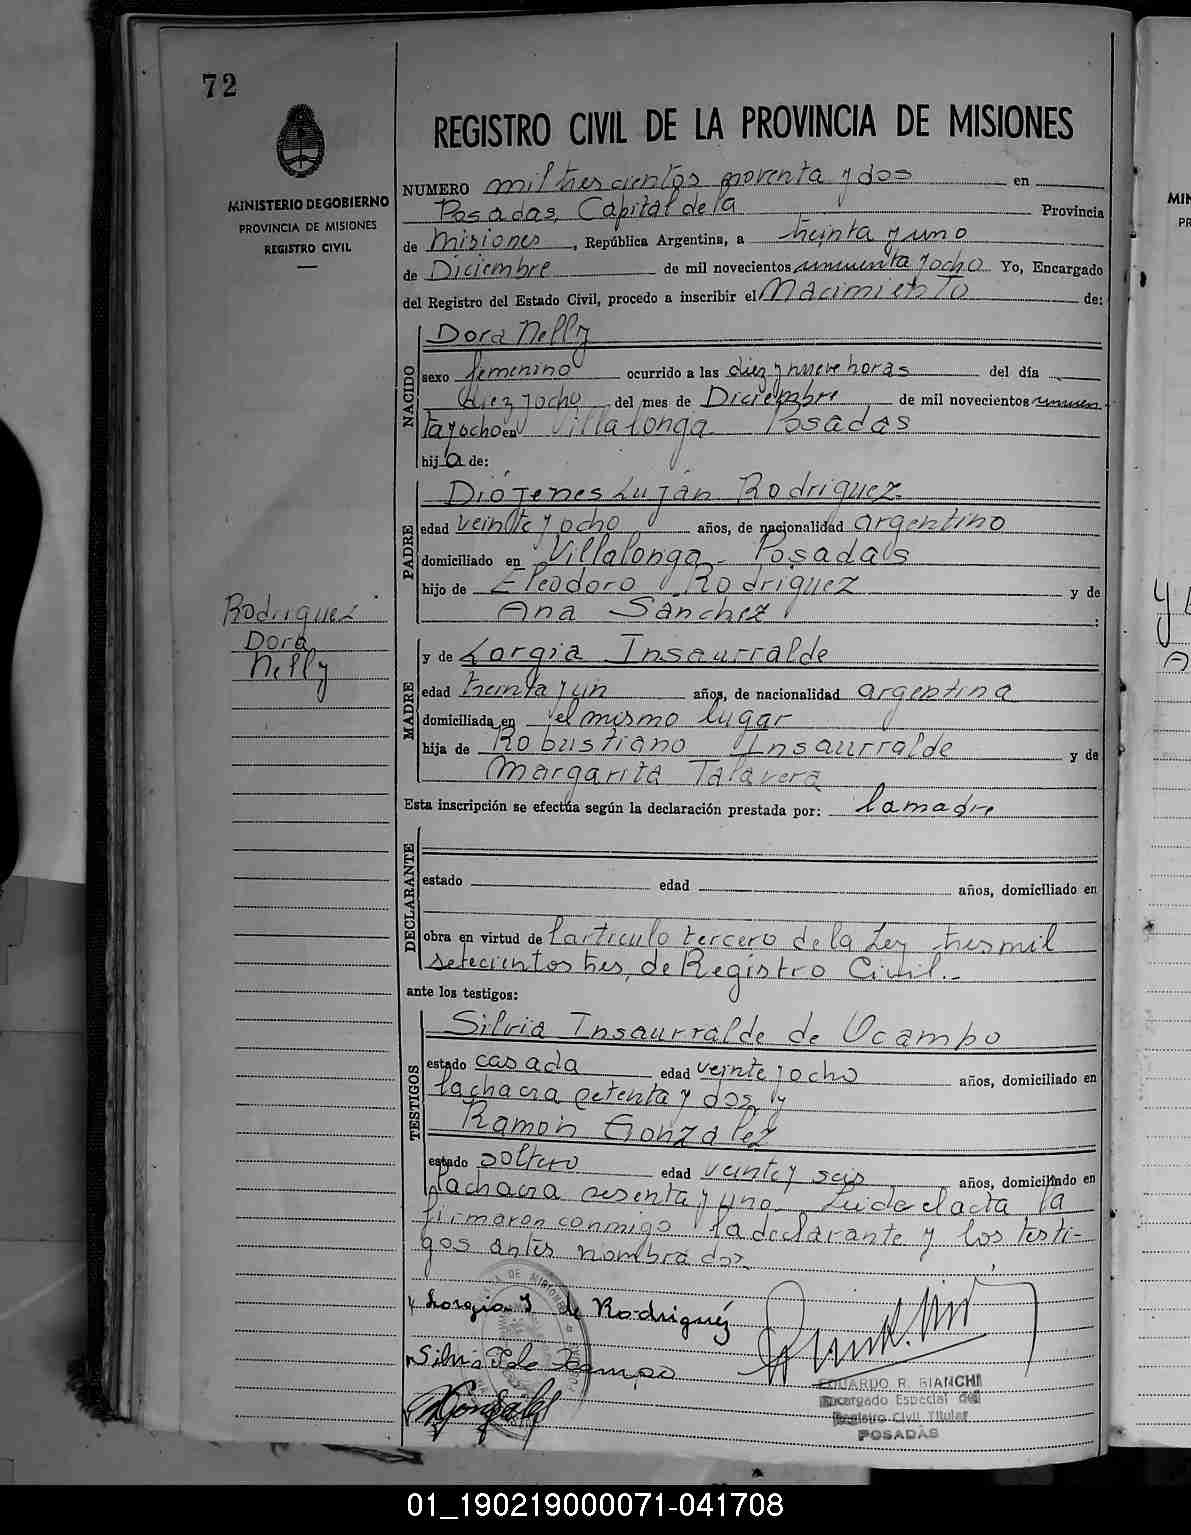 72
MINISTERIO DE GOBIERNO
PROVINCIA DE MISIONES
REGISTRO CIVIL
Rodriguez
Dora
Nelly
REGISTRO CIVIL DE LA PROVINCIA DE MISIONES
NUMERO mil trescientos noventa y dos en
Posadas, Capital de la Provincia
de Misiones, República Argentina, a treinta y uno
de Diciembre de mil novecientos cincuenta y ocho Yo, Encargado
del Registro del Estado Civil, procedo a inscribir el Nacimiento de:
NACIDO
Dora Nelly
sexo femenino ocurrido a las diez y nueve horas del día
diez y ocho del mes de Diciembre de mil novecientos cincuen
ta y ocho en Villalonga Posadas
hija de:
PADRE
Diógenes Luján Rodriguez.
edad veinte y ocho años, de nacionalidad argentino
domiciliado en Villalonga - Posadas
hijo de Eleodoro Rodriguez y de
Ana Sánchez :
MADRE
y de Lorgia Insaurralde
edad treinta y un años, de nacionalidad argentina
domiciliada en el mismo lugar
hija de Robustiano Insaurralde y de
Margarita Talavera
Esta inscripción se efectúa según la declaración prestada por: la madre
DECLARANTE
estado edad años, domiciliado en
obra en virtud de l'artículo tercero de la Ley tres mil
setecientos tres, de Registro Civil.-
ante los testigos:
TESTIGOS
Silvia Insaurralde de Ocampo
estado casada edad veinte y ocho años, domiciliado en
la chacra setenta y dos, y
Ramón González
estado soltero edad veinte y seis años, domiciliado en
la chacra sesenta y uno. Leida el acta la
firmaron conmigo la declarante y los testi-
gos antes nombrados.
Lorgia I de Rodriguéz
Silvia I de Ocampo
González
EDUARDO R. BIANCHI
Encargado Especial del
Registro Civil Titular
POSADAS
01_190219000071-041708